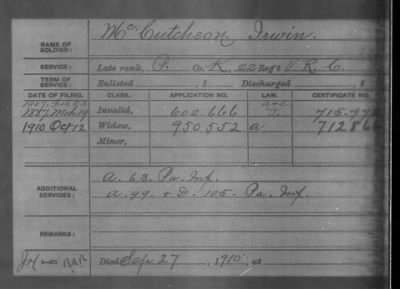 NAME OF SOLDIER: McCutcheon, Irwin.
SERVICE: Late rank, P. Co. K, 22 Reg't V. R. C.
TERM OF SERVICE: Enlisted , 1 Discharged , 1
DATE OF FILING. CLASS. APPLICATION NO. LAW. CERTIFICATE NO.
1887 Mch 19 Invalid, 602.666
1910 Oct 12 Widow, 950552 a
Minor,
ADDITIONAL SERVICES: A. 63. Pa. Inf.
a. 99. & D. 105. Pa. Inf.
REMARKS:
Died Sep 27, 1910, at